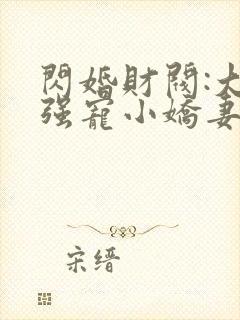 閃婚財閥:大
强寵小嬌妻
宋缙